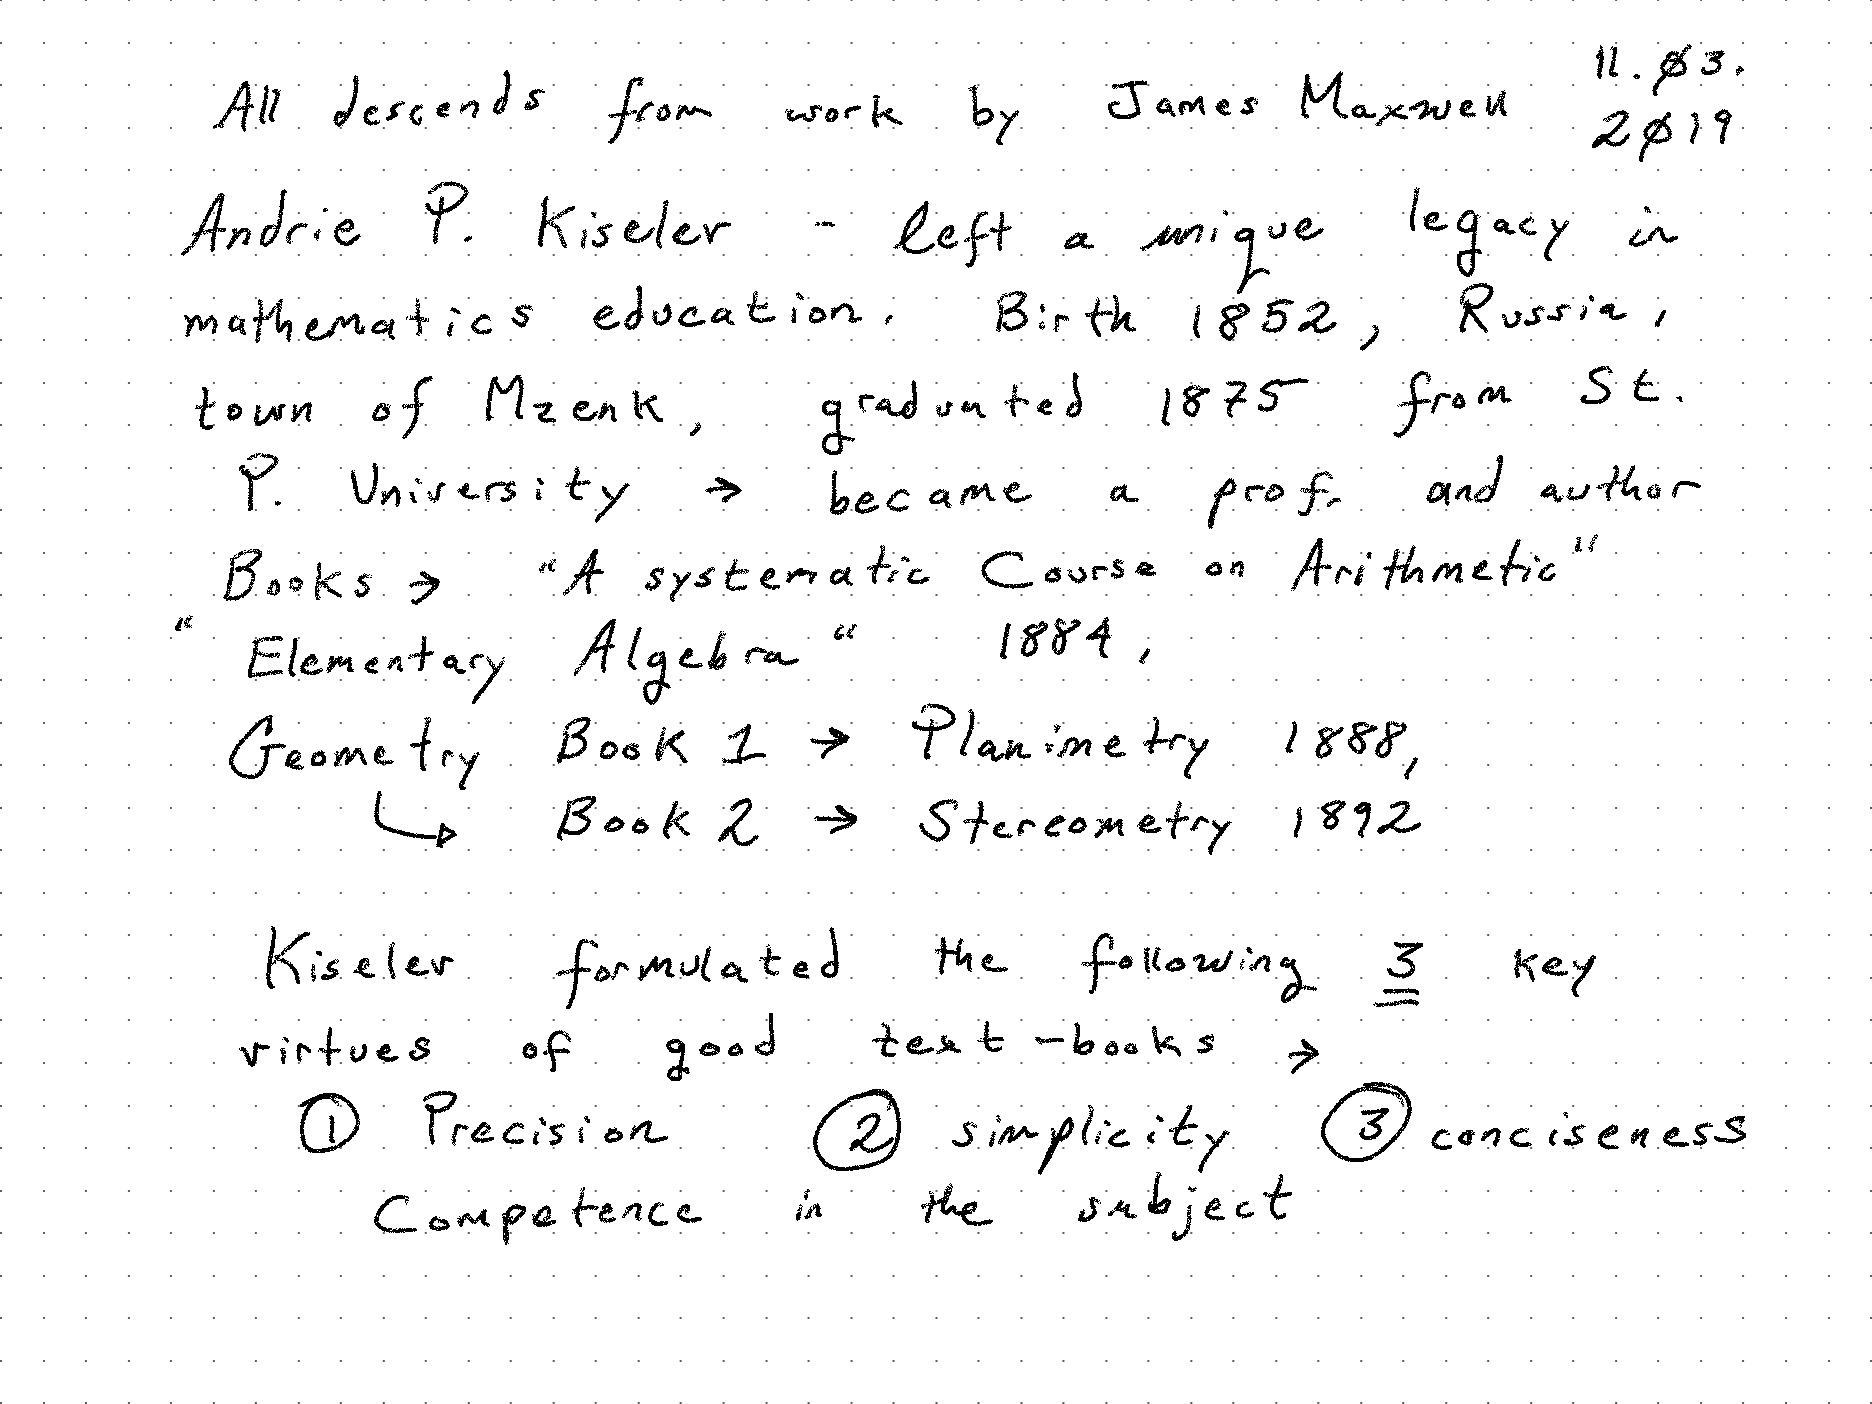 All descends from work by James Maxwell 11.Ø3.
2Ø19
Andrie P. Kiselev - left a unique legacy in
mathematics education. Birth 1852, Russia,
town of Mzenk, graduated 1875 from St.
P. University → became a prof. and author
Books → "A systematic Course on Arithmetic"
"Elementary Algebra" 1884,
Geometry Book 1 → Planimetry 1888,
↳ Book 2 → Stereometry 1892
Kiselev formulated the following 3 key
virtues of good text-books →
① Precision ② simplicity ③ conciseness
Competence in the subject